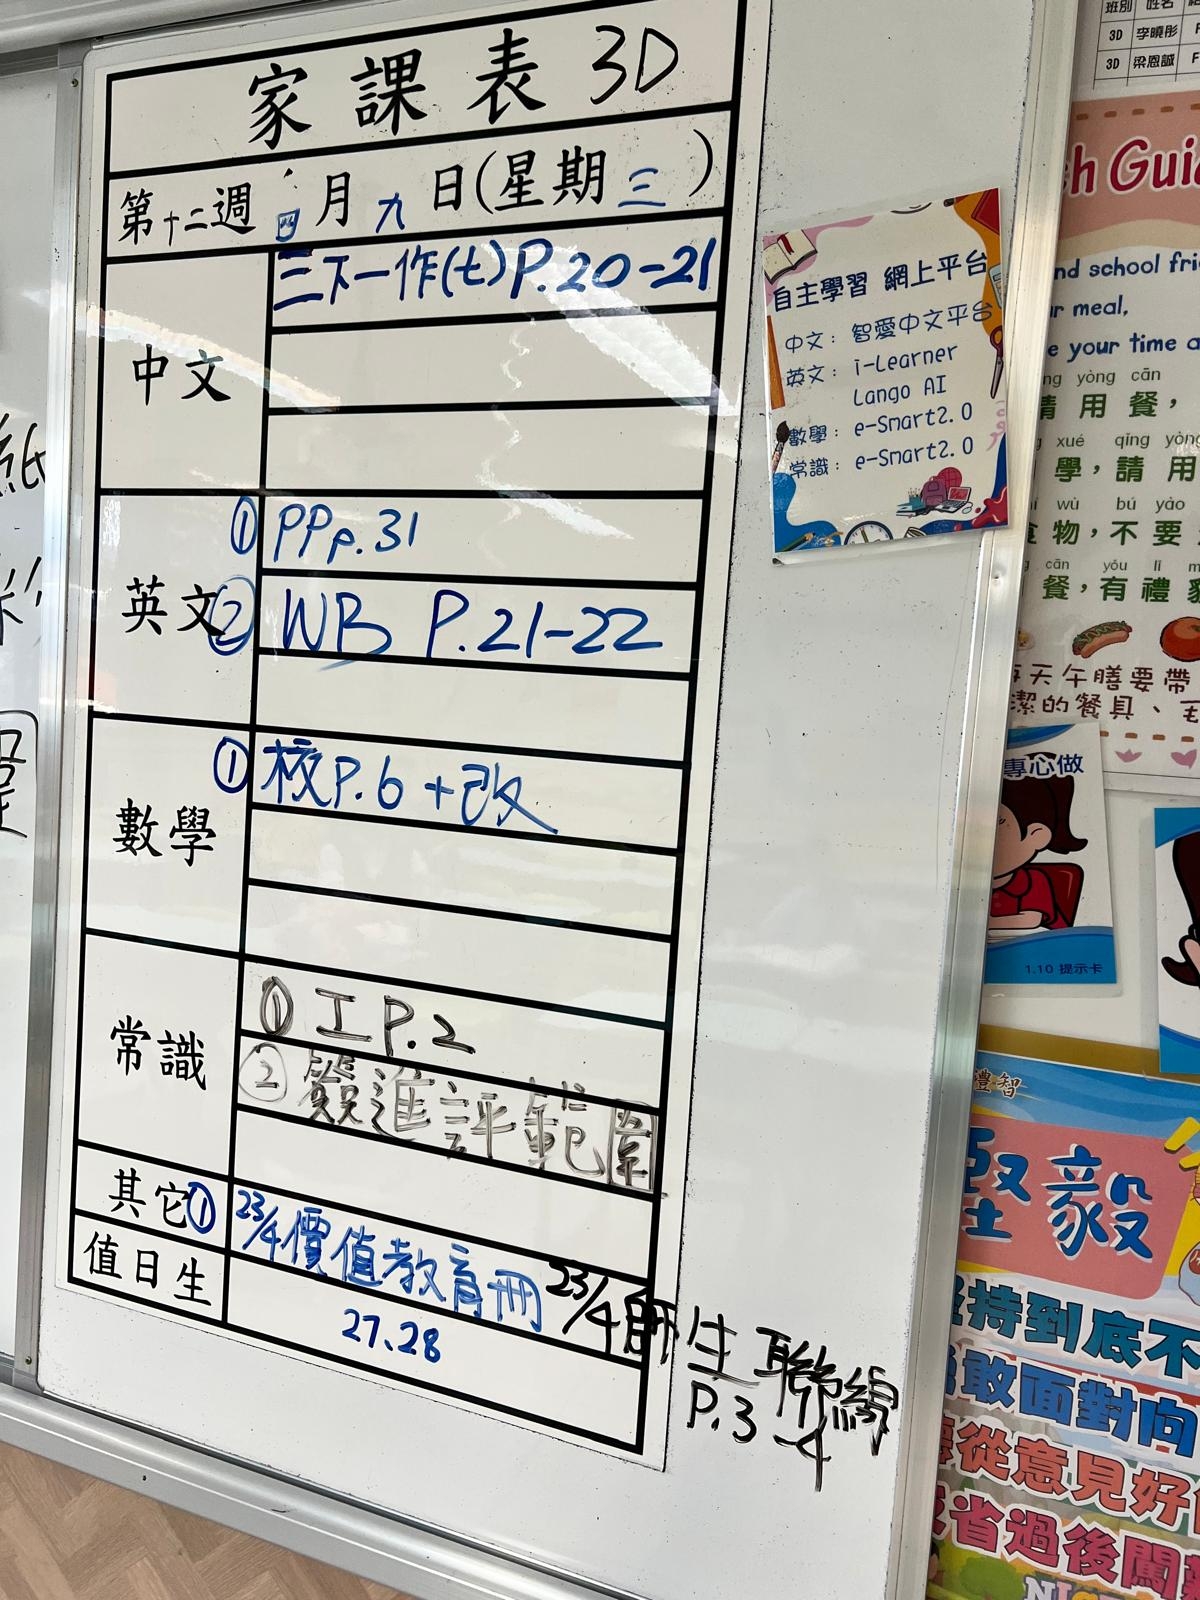 家課表 3D
第十二週 四月九日(星期三)
中文
三下一作(七)P.20-21
英文
① PP p.31
② WB P.21-22
數學
① 校P.6+改
常識
① 工P.2
② 簽進評範圍
其它
① 23/4價值教育冊 23/4師生聯線
P.3-4
值日生
27.28
自主學習 網上平台
中文: 智愛中文平台
英文: i-Learner
Lango AI
數學: e-Smart2.0
常識: e-Smart2.0
班別 姓名
3D 李曉彤 F
3D 梁恩誠 F
school
ur meal,
your time
yòng cān
請用餐,
xué qǐng yòng
學,請用
wù bú yào
食物,不要
cān yǒu lǐ
餐,有禮
天午膳要帶
潔的餐具、毛
專心做
1.10 提示卡
禮·智
堅毅
堅持到底不
勇敢面對向
聽從意見好
反省過後闖